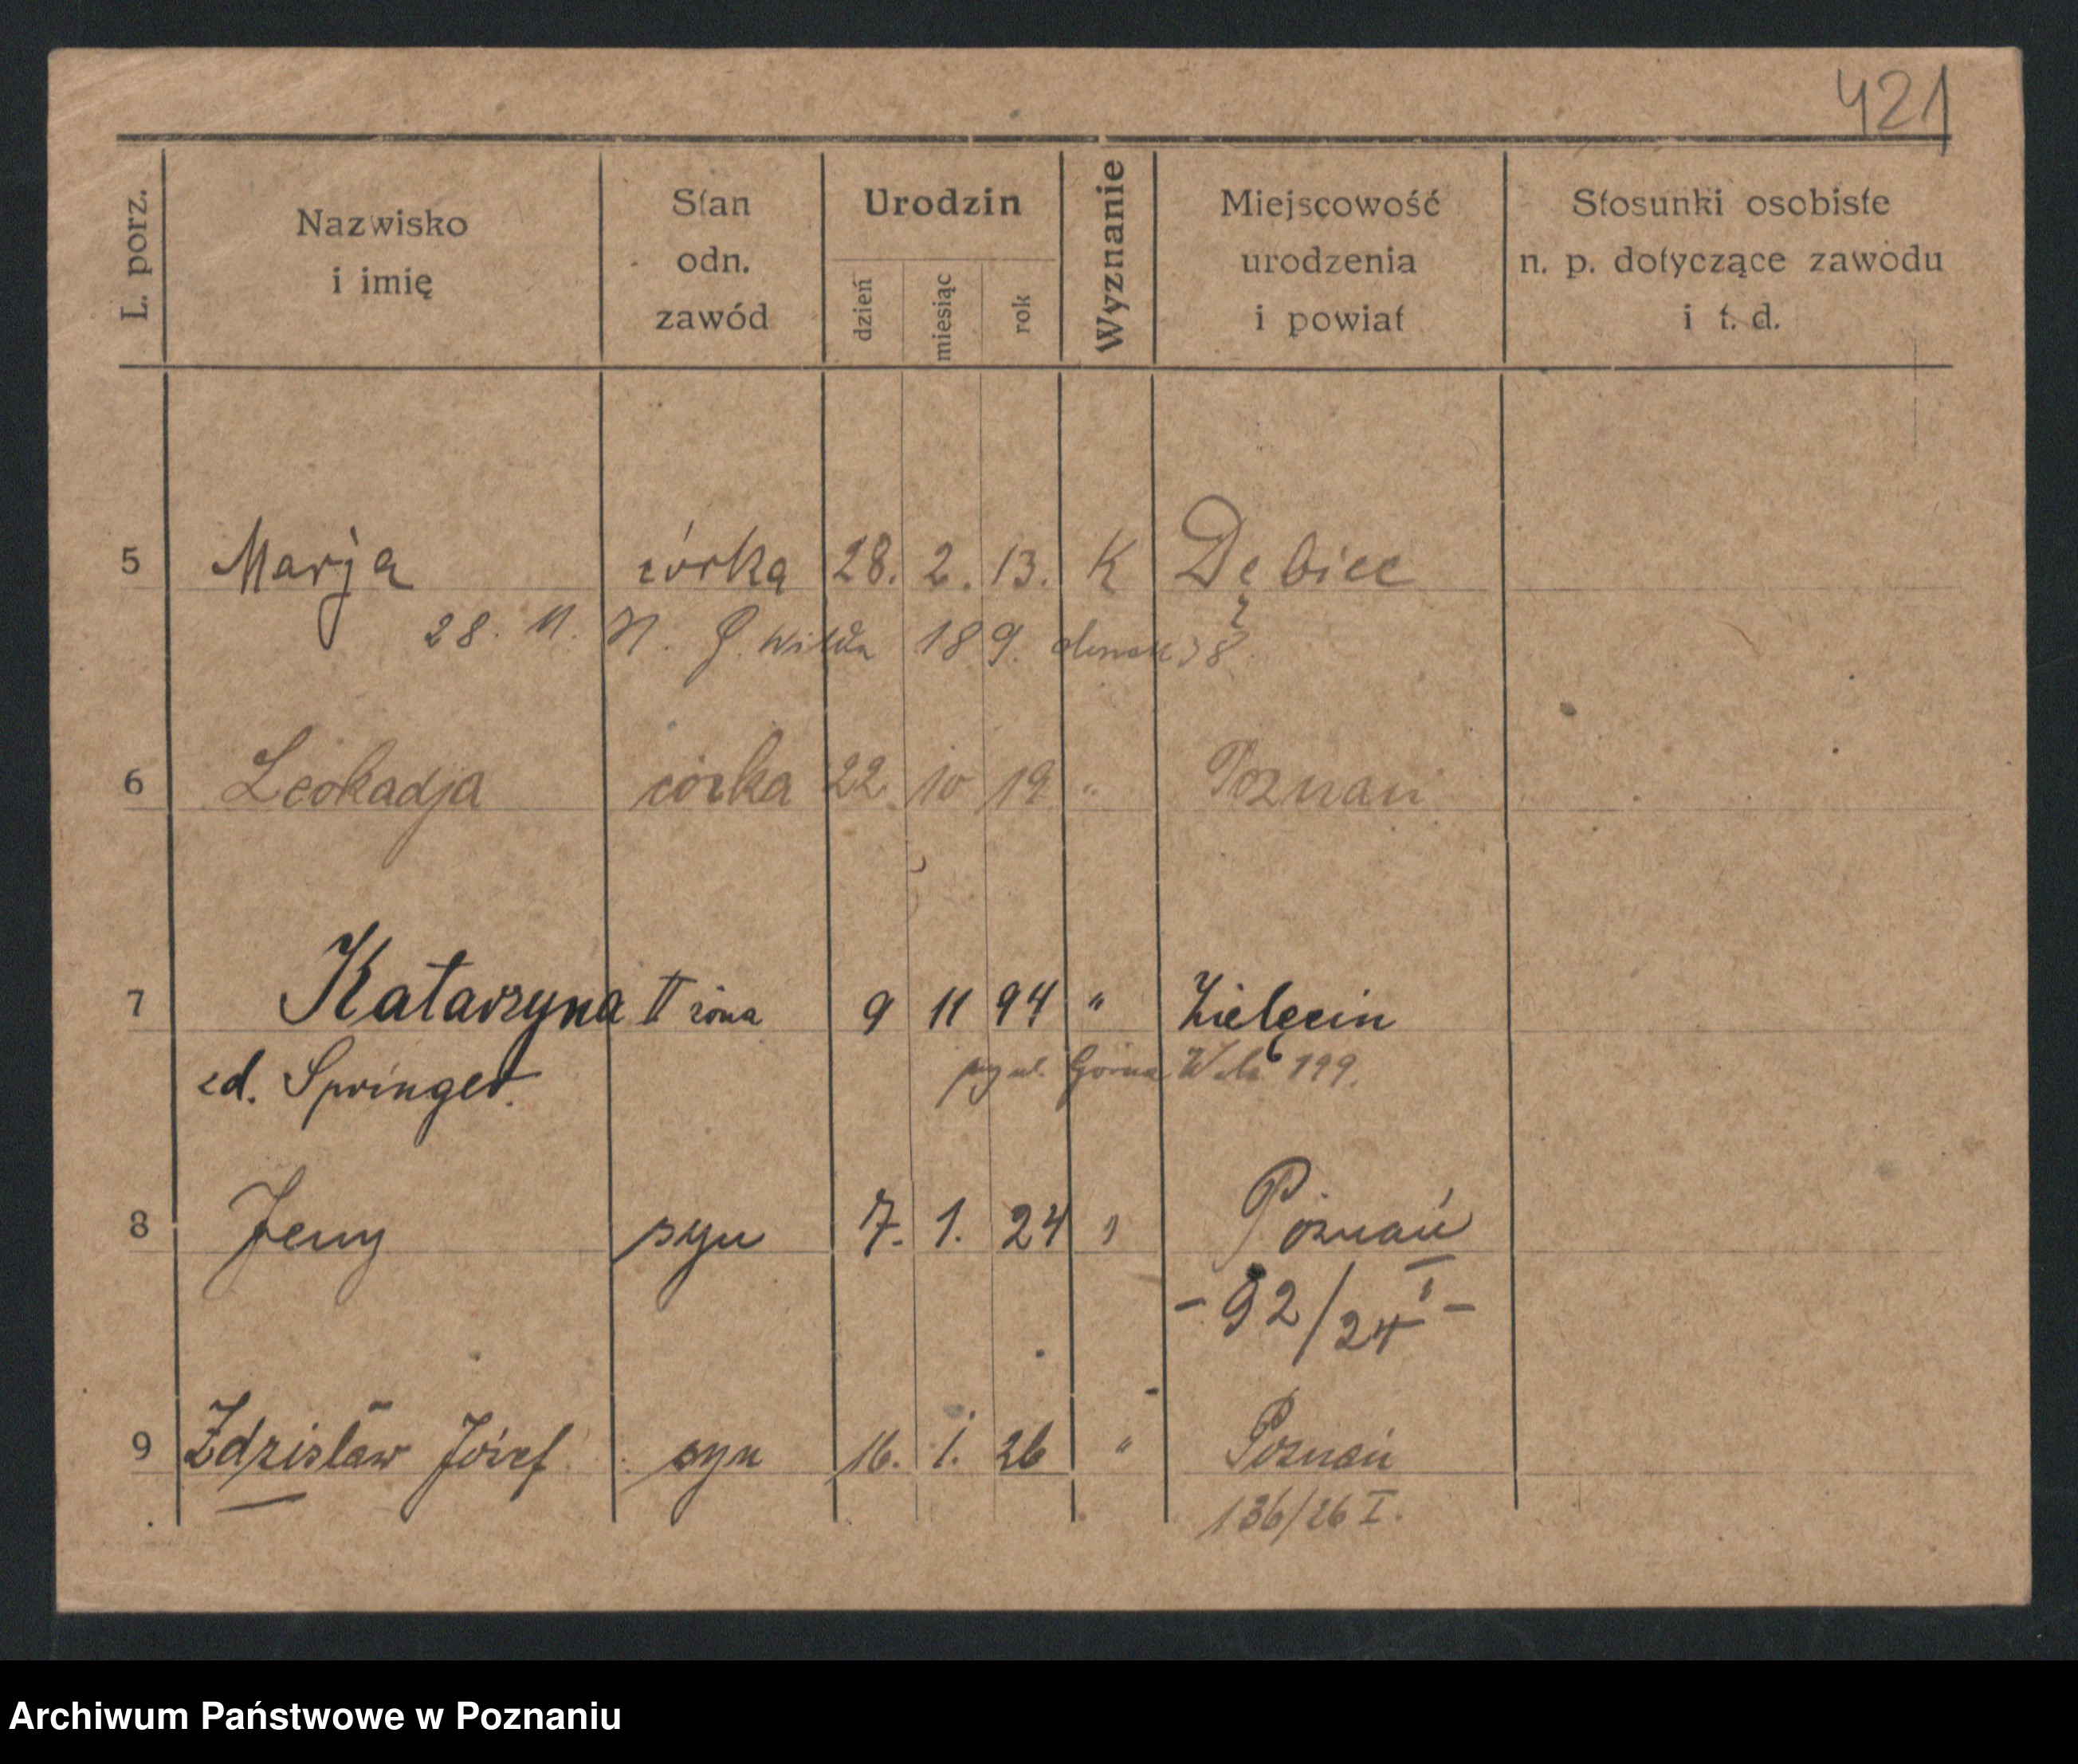 421
L. porz.
Nazwisko
i imię
Stan
odn.
zawód
Urodzin
dzień
miesiąc
rok
Wyznanie
Miejscowość
urodzenia
i powiat
Stosunki osobiste
n. p. dotyczące zawodu
i t. d.
5 Marja córka 28. 2. 13. K Dębiec
28. 11. G. Wilda 189. 38
6 Leokadja córka 22. 10 19 " Poznań
7 Katarzyna II żona 9 11 94 " Zielęcin
zd. Springer. Górna Wilda 199.
8 Jerzy syn 7. 1. 24 " Poznań
- 92/24 I -
9 Zdzisław Józef syn 16. 1. 26 " Poznań
136/26 I.
Archiwum Państwowe w Poznaniu